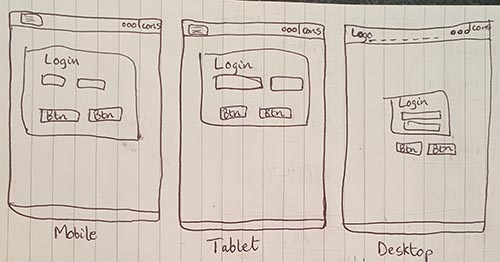 ooo Icons
Login
Btn Btn
Mobile
ooo Icons
Login
Btn Btn
Tablet
Logo ooo Icons
Login
Btn Btn
Desktop